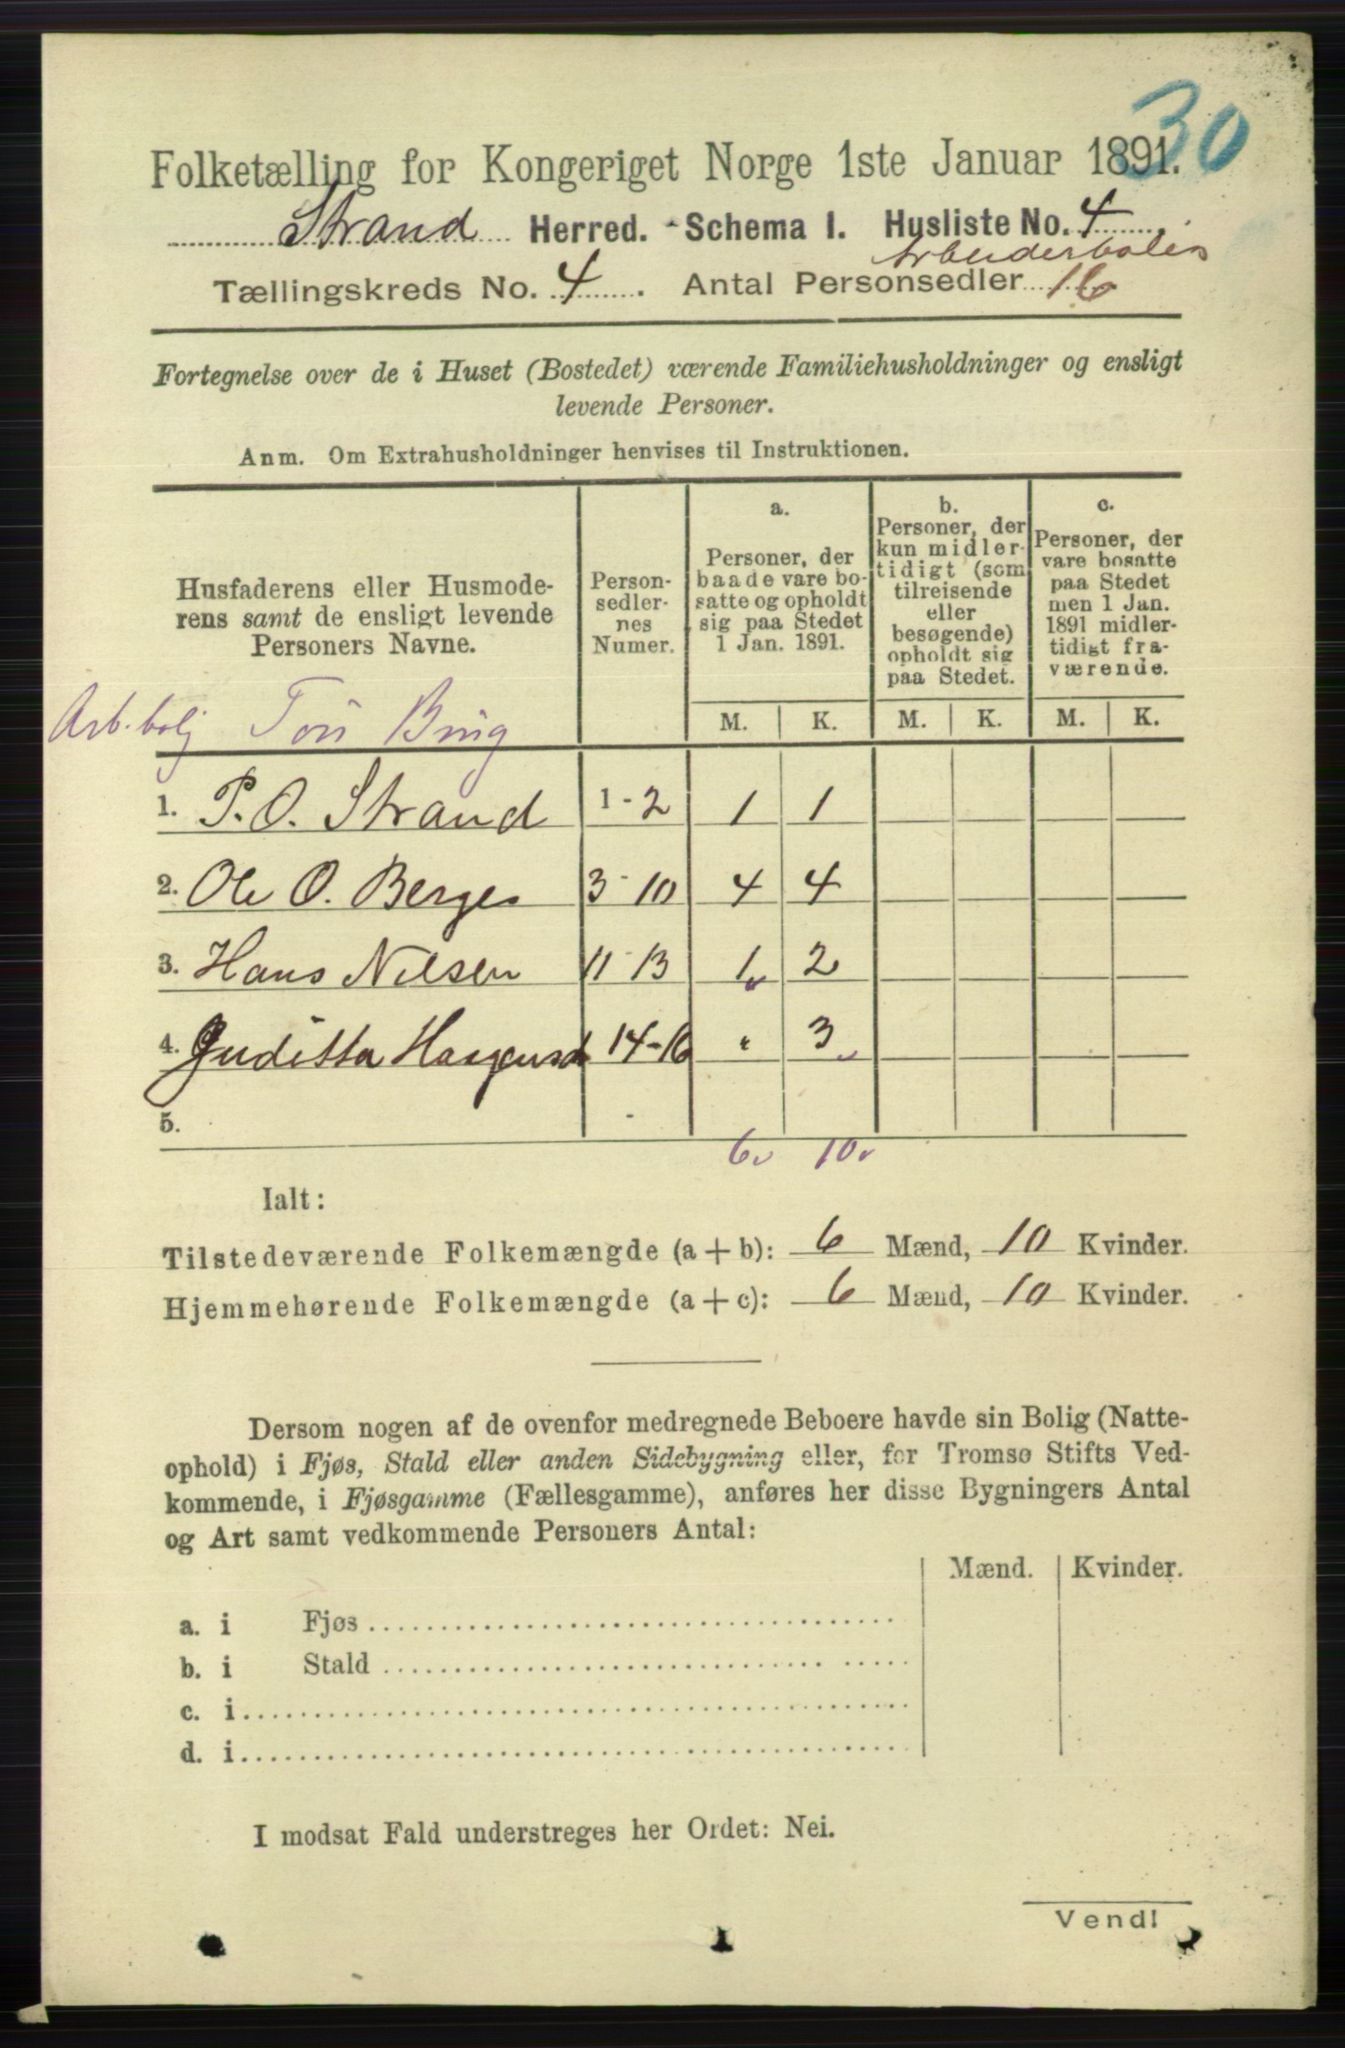 30
Folketælling for Kongeriget Norge 1ste Januar 1891.
Strand Herred. - Schema 1. Husliste No. 4
Arbeiderbolig
Tællingskreds No. 4. Antal Personsedler 16
Fortegnelse over de i Huset (Bostedet) værende Familiehusholdninger og ensligt
levende Personer.
Anm. Om Extrahusholdninger henvises til Instruktionen.
Husfaderens eller Husmode-
rens samt de ensligt levende
Personers Navne.
Person-
sedler-
nes
Numer.
a.
Personer, der
baade vare bo-
satte og opholdt
sig paa Stedet
1 Jan. 1891.
b.
Personer, der
kun midler-
tidigt (som
tilreisende
eller
besøgende)
opholdt sig
paa Stedet.
c.
Personer, der
vare bosatte
paa Stedet
men 1 Jan.
1891 midler-
tidigt fra-
værende.
M. K. M. K. M. K.
Arb.bolj
1. P. O. Strand 1-2 1 1
2. Ole O. Berge 3-10 4 4
3. Hans Nilsen 11-13 1 2
4. Juditta 14-16 " 3
5. -
6 10
Ialt:
Tilstedeværende Folkemængde (a + b): 6 Mænd, 10 Kvinder.
Hjemmehørende Folkemængde (a + c): 6 Mænd, 10 Kvinder.
Dersom nogen af de ovenfor medregnede Beboere havde sin Bolig (Natte-
ophold) i Fjøs, Stald eller anden Sidebygning eller, for Tromsø Stifts Ved-
kommende, i Fjøsgamme (Fællesgamme), anføres her disse Bygningers Antal
og Art samt vedkommende Personers Antal:
Mænd. Kvinder.
a. i Fjøs
b. i Stald
c. i
d. i
I modsat Fald understreges her Ordet: Nei.
Vend!